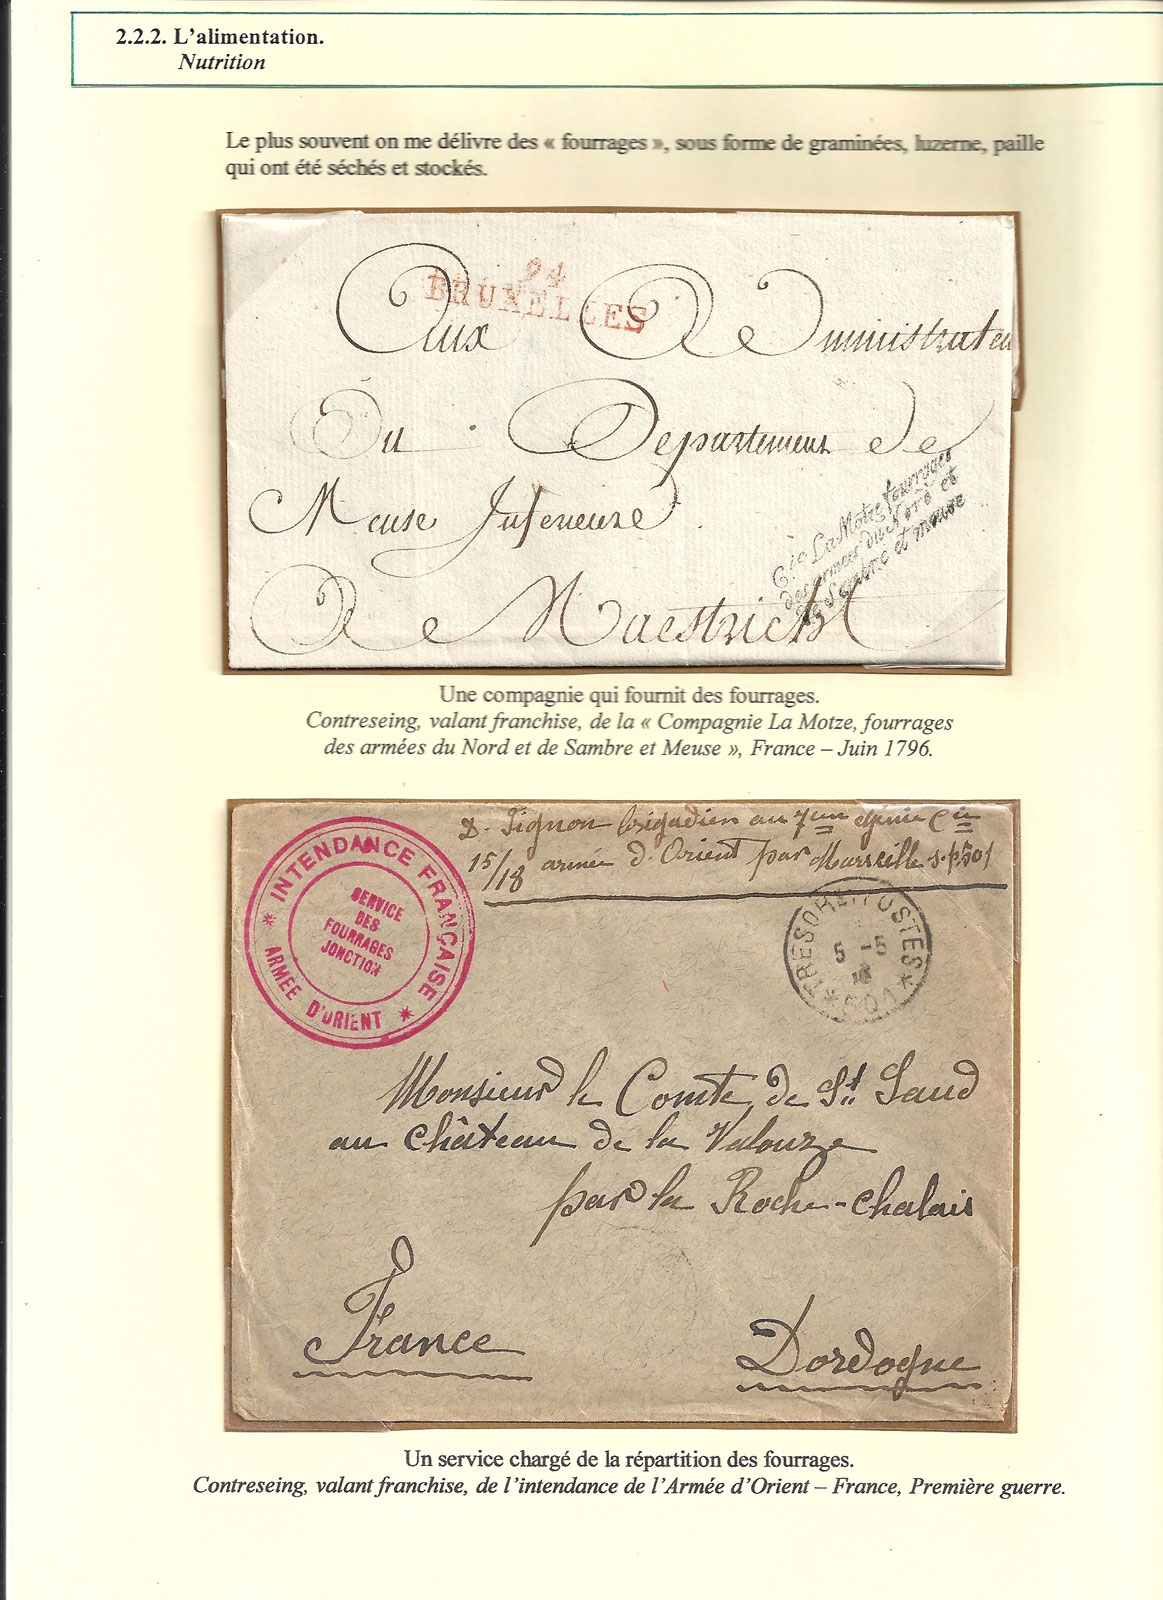 2.2.2. L'alimentation.
Nutrition
Le plus souvent on me délivre des « fourrages », sous forme de graminées, luzerne, paille
qui ont été séchés et stockés.
94
BRUXELLES
Aux Administrateu
Du Departement de
Meuse Inferieure
A Maestricht
Cie La Motze fourrages
des armees du Nord et
de Sambre et meuse
Une compagnie qui fournit des fourrages.
Contreseing, valant franchise, de la « Compagnie La Motze, fourrages
des armées du Nord et de Sambre et Meuse », France – Juin 1796.
D. Pignon brigadier au 7eme Génie Cie
15/18 armée d'Orient par Marseille s.p. 501
INTENDANCE FRANÇAISE
* ARMÉE D'ORIENT *
SERVICE
DES
FOURRAGES
JONCTION
TRESOR ET POSTES
5 -5
* 501 *
Monsieur le Comte de St. Saud
au château de la Valouze
par la Roche-Chalais
France
Dordogne
Un service chargé de la répartition des fourrages.
Contreseing, valant franchise, de l'intendance de l'Armée d'Orient – France, Première guerre.